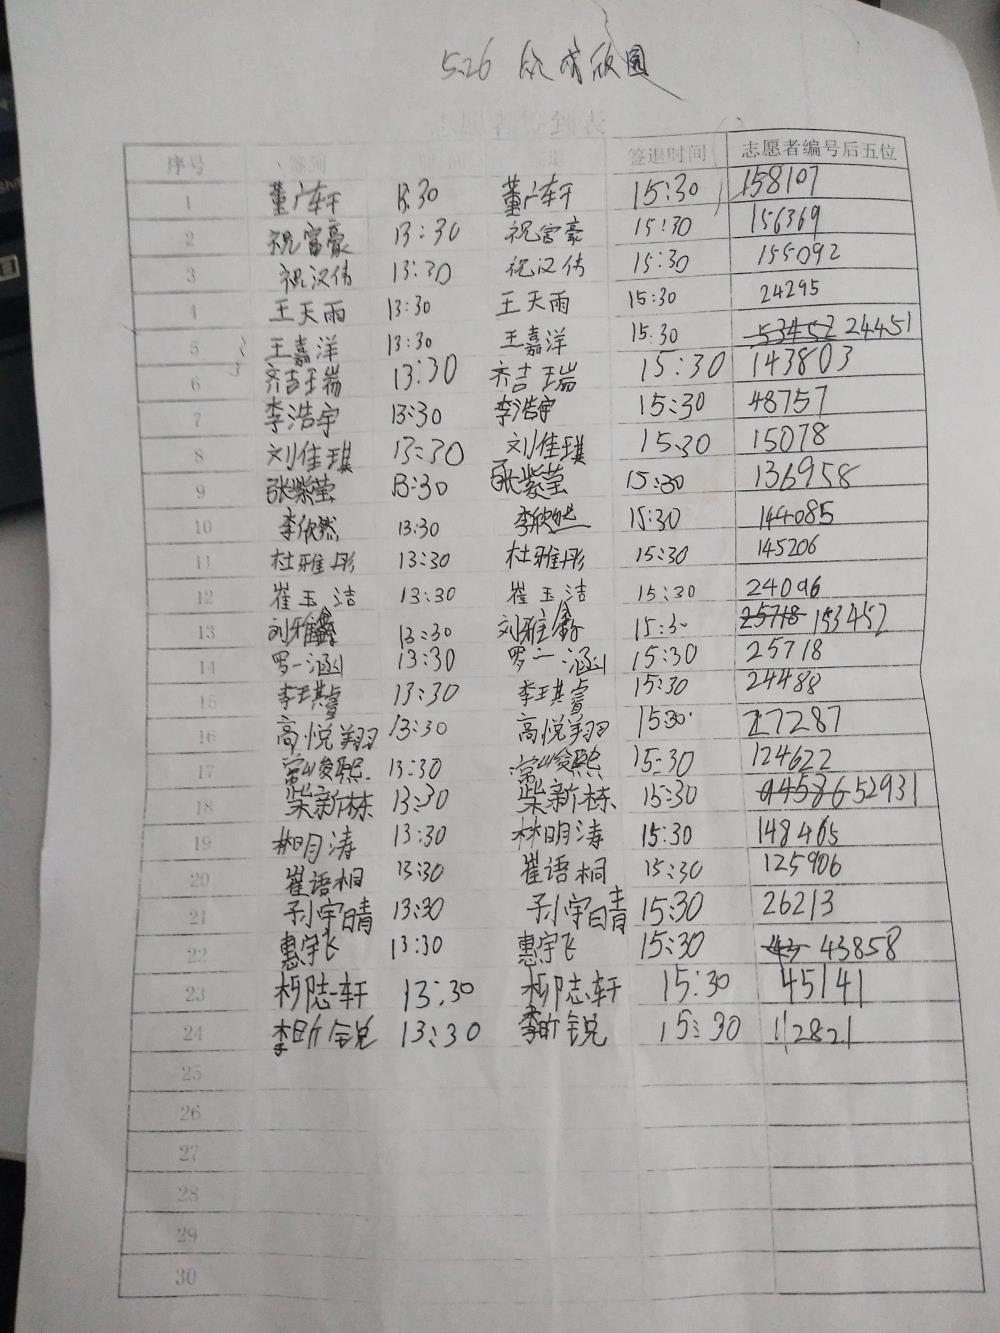 5.26
序号 签到 时间 签退 签退时间 志愿者编号后五位
1 董广轩 13:30 董广轩 15:30 158107
2 祝富豪 13:30 祝富豪 15:30 156369
3 祝汉伟 13:30 祝汉伟 15:30 155092
4 王天雨 13:30 王天雨 15:30 24295
5 王嘉洋 13:30 王嘉洋 15:30 53452 24451
6 齐吉瑞 13:30 齐吉瑞 15:30 143803
7 李浩宇 13:30 李浩宇 15:30 48757
8 刘佳琪 13:30 刘佳琪 15:30 15078
9 张紫莹 13:30 张紫莹 15:30 136958
10 李欣然 13:30 李欣然 15:30 144085
11 杜雅彤 13:30 杜雅彤 15:30 145206
12 崔玉洁 13:30 崔玉洁 15:30 24096
13 刘雅鑫 13:30 刘雅鑫 15:30 25718 153452
14 罗一涵 13:30 罗一涵 15:30 25718
15 李琪睿 13:30 李琪睿 15:30 24488
16 高悦翔 13:30 高悦翔 15:30 27287
17 常峻熙 13:30 常峻熙 15:30 124622
18 柴新栋 13:30 柴新栋 15:30 52931
19 林明涛 13:30 林明涛 15:30 148465
20 崔语桐 13:30 崔语桐 15:30 125906
21 刘宇晴 13:30 刘宇晴 15:30 26213
22 惠宇飞 13:30 惠宇飞 15:30 43 43858
23 柳陆轩 13:30 柳陆轩 15:30 45141
24 李昕锐 13:30 李昕锐 15:30 112821
25
26
27
28
29
30